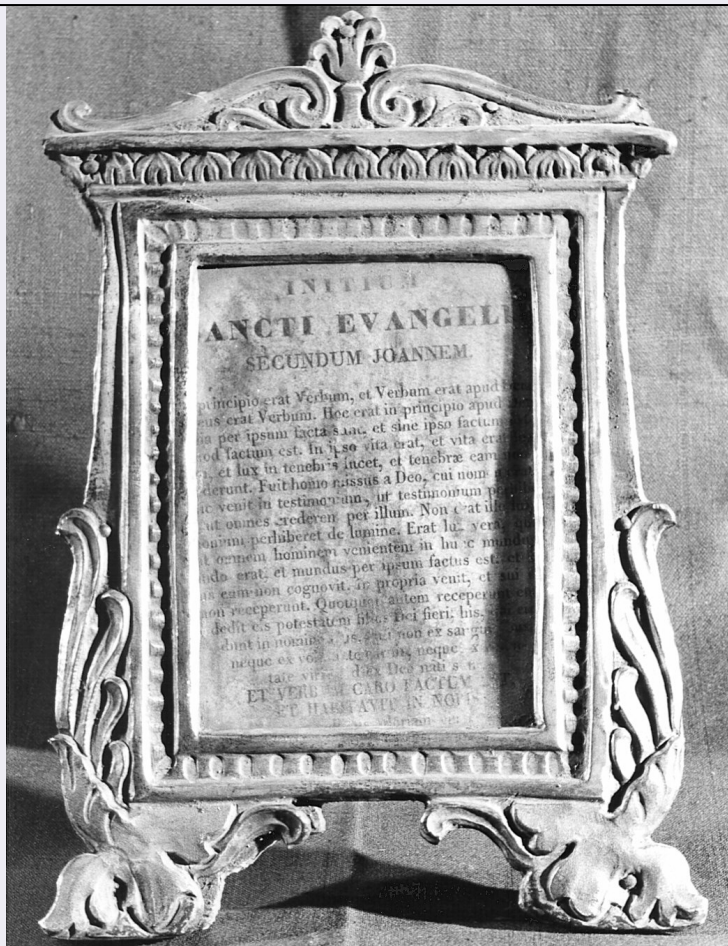 INITIUM
ANCTI EVANGELI
SECUNDUM JOANNEM.
principio erat Verbum, et Verbum erat apud
us erat Verbum. Hoc erat in principio apud
ia per ipsum facta sunt, et sine ipso factum
od factum est. In ipso vita erat, et vita erat
et lux in tenebris lucet, et tenebræ eam
derunt. Fuit homo missus a Deo, cui nomen
venit in testimonium, ut testimonium
ut omnes crederent per illum. Non erat ille
onium perhiberet de lumine. Erat lux vera,
omnem hominem venientem in hunc mundum
ndo erat, et mundus per ipsum factus est, et
us eum non cognovit. In propria venit, et sui
non receperunt. Quotquot autem receperunt
dedit eis potestatem filios Dei fieri, his,
dunt in nomine ejus, qui non ex sanguinibus
neque ex voluntate carnis, neque
tate viri, sed ex Deo nati sunt
ET VERBUM CARO FACTUM
ET HABITAVIT IN NOBIS